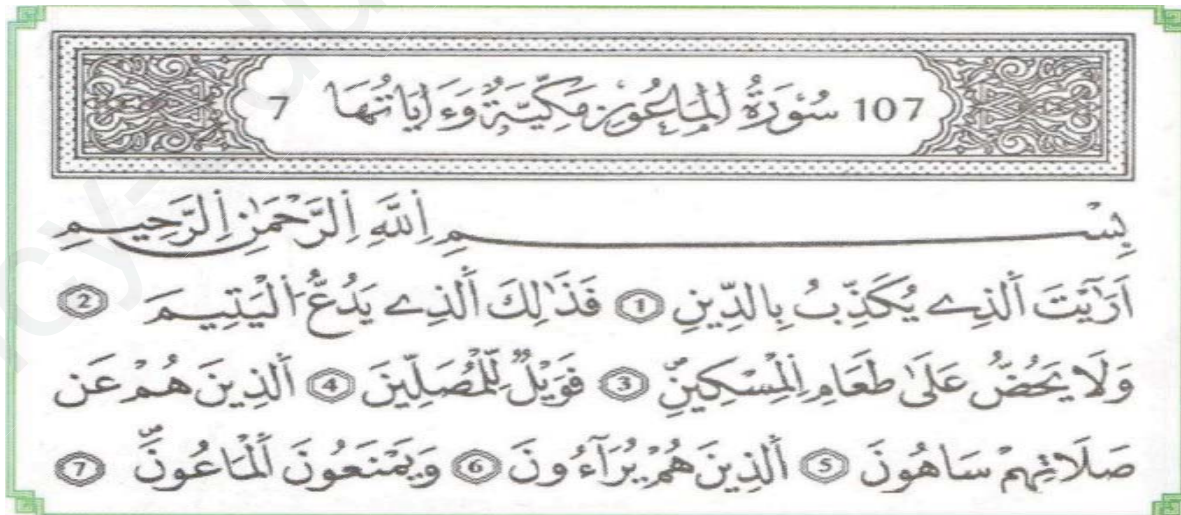 107 سُورَةُ الْمَاعُونِ مَكِّيَّةٌ وَءَايَاتُهَا 7
بِسْمِ اِللَّهِ اِلرَّحْمَٰنِ اِلرَّحِيمِ
اَرَٰيْتَ اَلذِے يُكَذِّبُ بِالدِّينِ 1 فَذَٰلِكَ اَلذِے يَدُعُّ اُلْيَتِيمَ 2
وَلَا يَحُضُّ عَلَىٰ طَعَامِ اِلْمِسْكِينِ 3 فَوَيْلٌ لِّلْمُصَلِّينَ 4 اَلذِينَ هُمْ عَن
صَلَاتِهِمْ سَاهُونَ 5 اَلذِينَ هُمْ يُرَآءُونَ 6 وَيَمْنَعُونَ اَلْمَاعُونَ 7